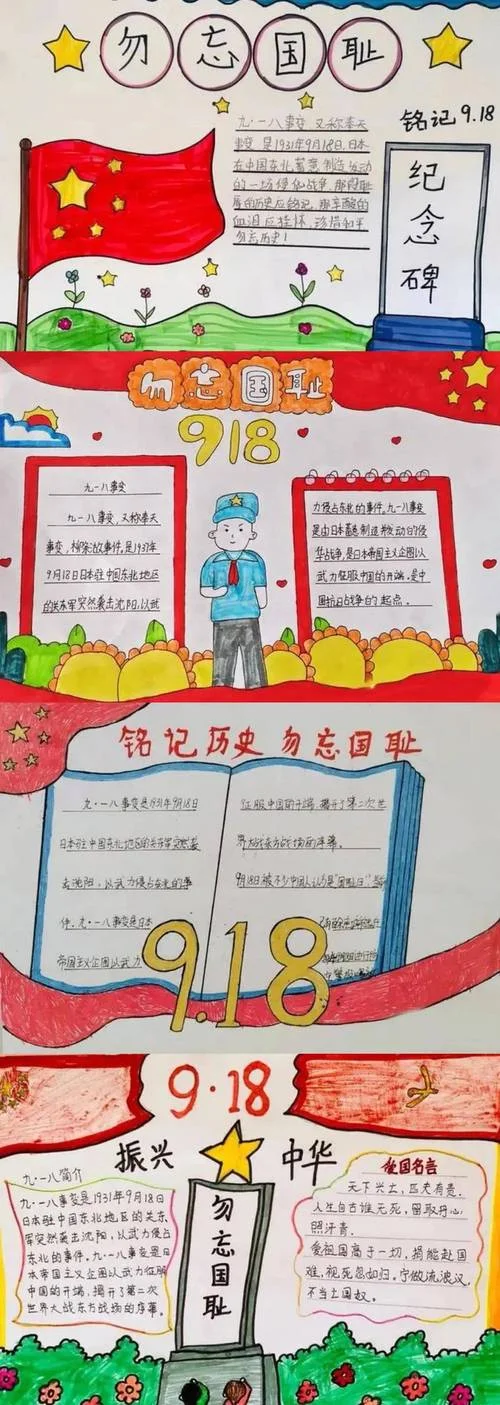 勿忘国耻
铭记9.18
九·一八事变又称奉天
事变是1931年9月18日日本
在中国东北蓄意制造发动
的一场侵华战争,那段耻
辱的历史应铭记,那辛酸的
血泪应挂怀,珍惜和平
勿忘历史!
纪念碑
勿忘国耻
918
九一八事变
九一八事变,又称奉天
事变,
9月18日日本驻中国东北地区
的关东军突然袭击沈阳,以武
力侵占东北的事件。九一八事变
是由日本蓄意制造发动的侵
华战争,是日本帝国主义企图以
武力征服中国的开端,是中
国抗日战争的起点。
铭记历史 勿忘国耻
九·一八事变是1931年9月18日
日本驻中国东北地区的关东军突然袭
击沈阳,以武力侵占东北的事
件。九·一八事变是日本
帝国主义企图以武力
征服中国的开端,揭开了第二次世
界大战东方战场的序幕。
9月18被不少中国人认为是"国耻日"
9.18
9·18
振兴中华
九·一八简介
九·一八事变是1931年9月18日
日本驻中国东北地区的关东
军突然袭击沈阳,以武力侵占
东北的事件。九·一八事变是日
本帝国主义企图以武力征服
中国的开端,揭开了第二次
世界大战东方战场的序幕。
勿忘国耻
爱国名言
天下兴亡,匹夫有责.
人生自古谁无死,留取丹心
照汗青.
爱祖国高于一切,捐躯赴国
难,视死忽如归。宁做流浪汉,
不当亡国奴。